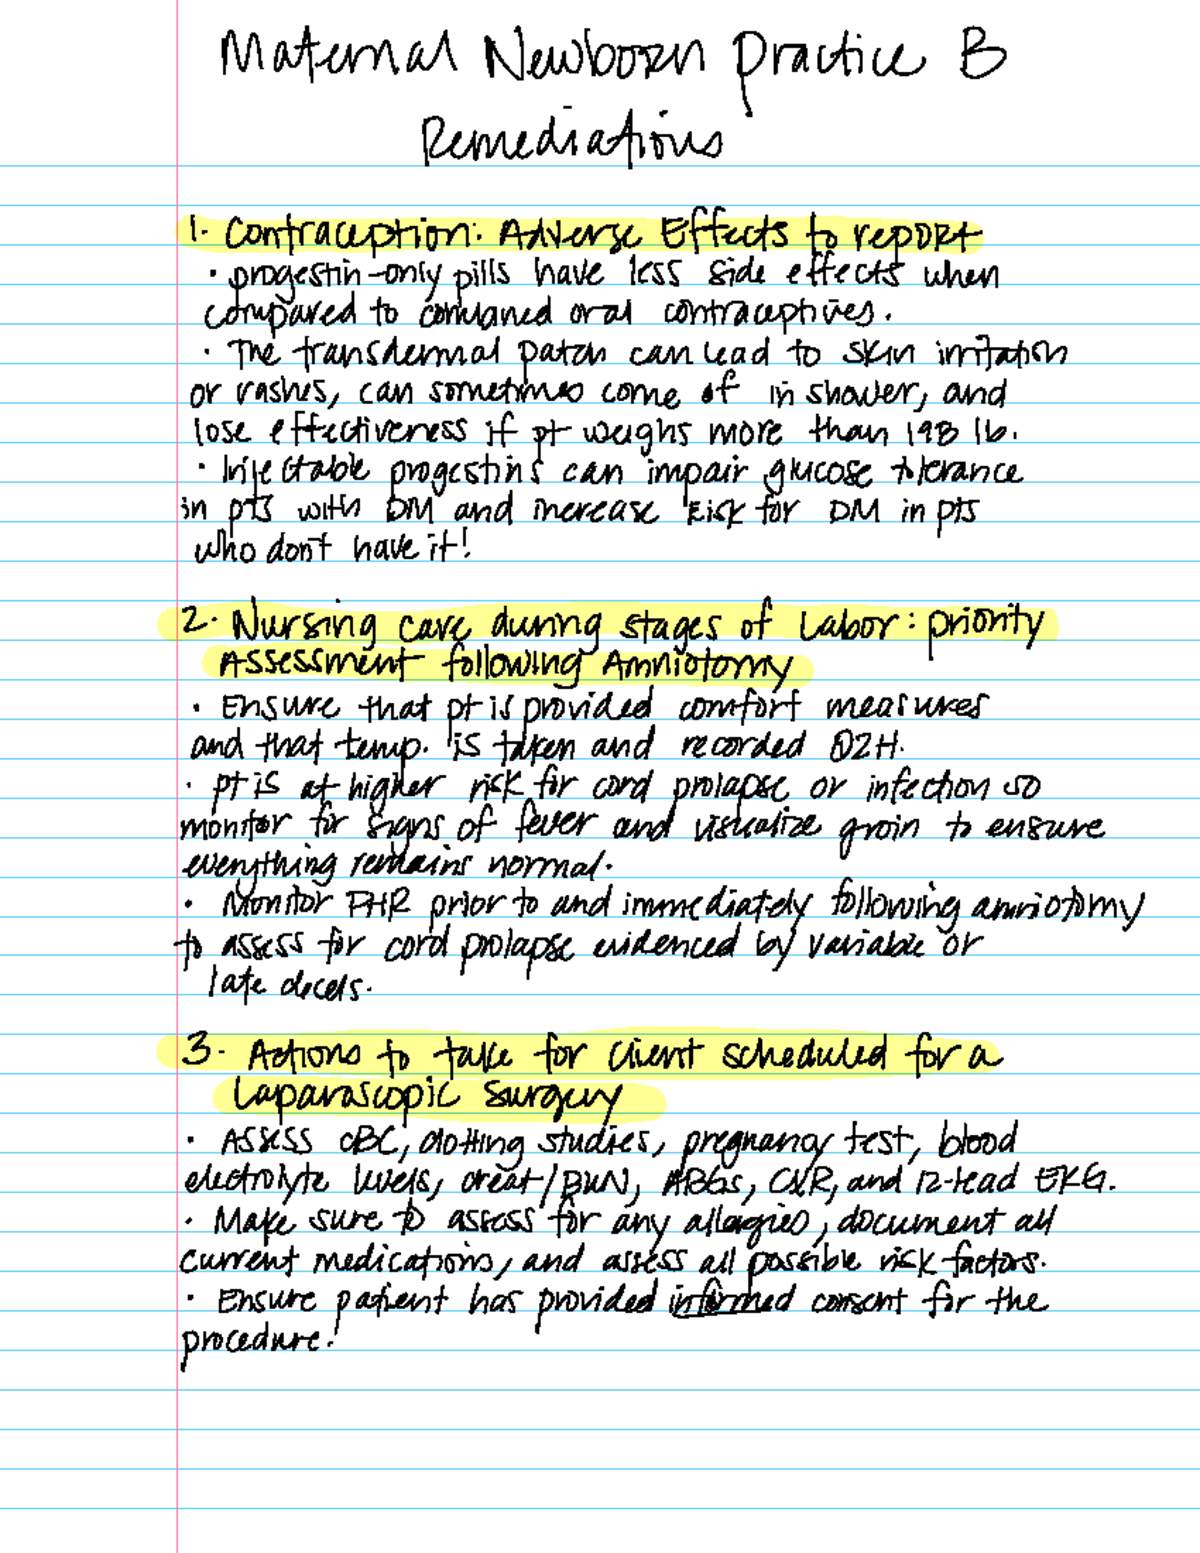 Maternal Newborn Practice B
Remediations
1. Contraception: Adverse Effects to report
• progestin-only pills have less side effects when
compared to combined oral contraceptives.
• The transdermal patch can lead to skin irritation
or rashes, can sometimes come of in shower, and
lose effectiveness if pt weighs more than 198 lb.
• Injectable progestins can impair glucose tolerance
in pts with DM and increase risk for DM in pts
who don't have it!
2. Nursing care during stages of Labor: priority
Assessment following Amniotomy
• Ensure that pt is provided comfort measures
and that temp. is taken and recorded Q2H.
• pt is at higher risk for cord prolapse or infection so
monitor for signs of fever and visualize groin to ensure
everything remains normal.
• Monitor FHR prior to and immediately following amniotomy
to assess for cord prolapse evidenced by variable or
late decels.
3. Actions to take for Client scheduled for a
Laparascopic Surgery
• Assess CBC, clotting studies, pregnancy test, blood
electrolyte levels, creat/BUN, ABGs, CXR, and 12-lead EKG.
• Make sure to assess for any allergies, document all
current medications, and assess all possible risk factors.
• Ensure patient has provided informed consent for the
procedure!